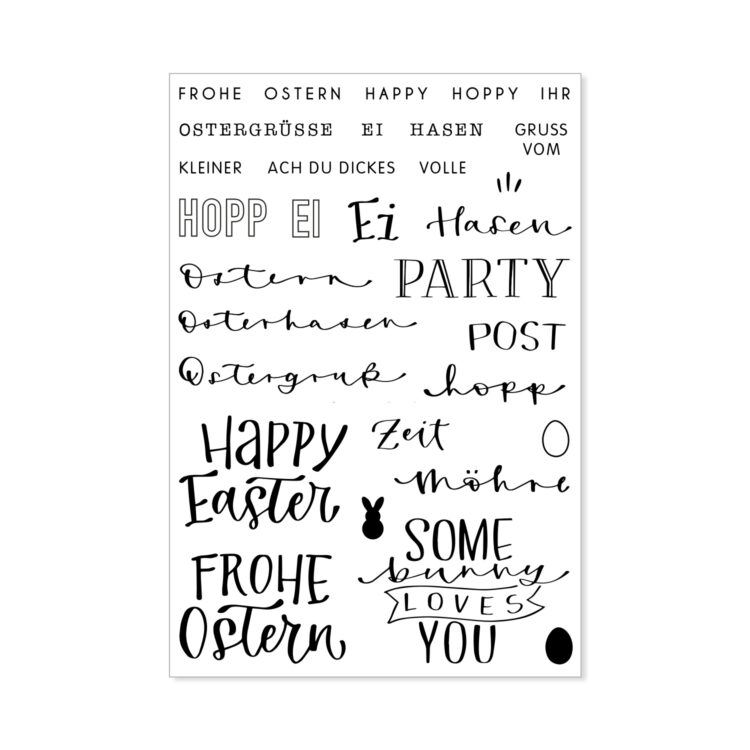 FROHE OSTERN HAPPY HOPPY IHR
OSTERGRÜSSE EI HASEN GRUSS
VOM
KLEINER ACH DU DICKES VOLLE
HOPP EI Ei Hasen
Ostern PARTY
Osterhasen POST
Ostergruß hopp
HAPPY Zeit
Easter möhre
FROHE
Ostern
SOME
bunny
LOVES
YOU